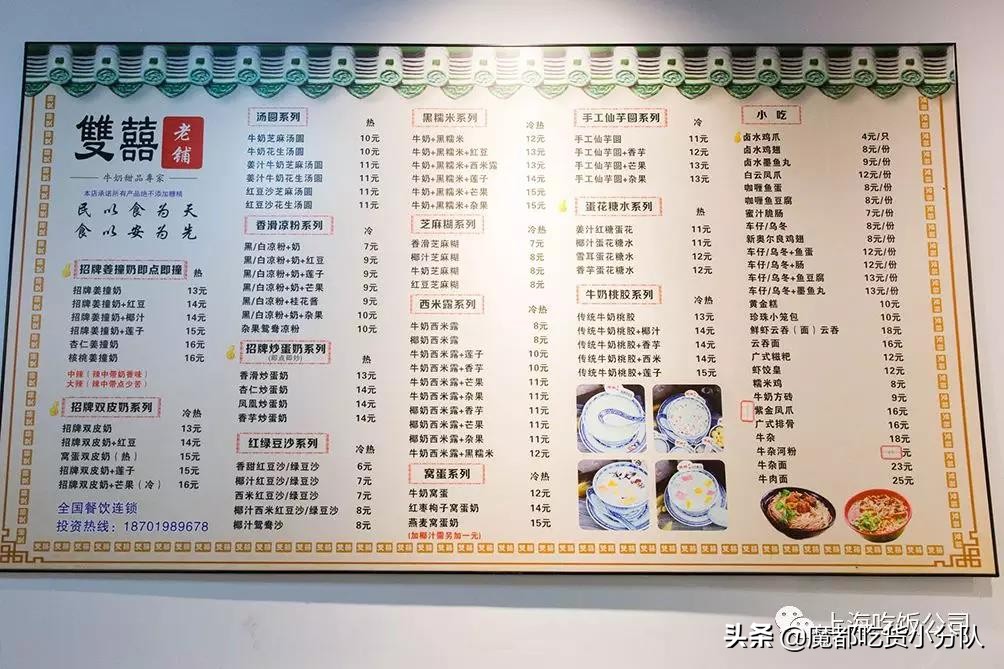 雙囍
老舖
牛奶甜品專家
本店承诺所有产品绝不添加糖精
民以食为天
食以安为先
招牌姜撞奶即点即撞 热
招牌姜撞奶 13元
招牌姜撞奶+红豆 14元
招牌姜撞奶+椰汁 14元
招牌姜撞奶+莲子 15元
杏仁姜撞奶 16元
核桃姜撞奶 16元
中辣（辣中带奶香味）
大辣（辣中带点少苦）
招牌双皮奶系列 冷热
招牌双皮奶 13元
招牌双皮奶+红豆 14元
窝蛋双皮奶（热） 15元
招牌双皮奶+莲子 15元
招牌双皮奶+芒果（冷） 16元
全国餐饮连锁
投资热线：18701989678
汤圆系列 热
牛奶芝麻汤圆 10元
牛奶花生汤圆 10元
姜汁牛奶芝麻汤圆 11元
姜汁牛奶花生汤圆 11元
红豆沙芝麻汤圆 11元
红豆沙花生汤圆 11元
香滑凉粉系列 冷
黑/白凉粉+奶 7元
黑/白凉粉+奶+红豆 9元
黑/白凉粉+奶+莲子 9元
黑/白凉粉+奶+芒果 9元
黑/白凉粉+桂花酱 9元
黑/白凉粉+奶+杂果 10元
杂果鸳鸯凉粉 10元
招牌炒蛋奶系列
(即点即炒) 热
香滑炒蛋奶 13元
杏仁炒蛋奶 14元
凤凰炒蛋奶 14元
香芋炒蛋奶 14元
红绿豆沙系列 冷热
香甜红豆沙/绿豆沙 6元
椰汁红豆沙/绿豆沙 7元
西米红豆沙/绿豆沙 7元
椰汁西米红豆沙/绿豆沙 8元
椰汁鸳鸯沙 8元
黑糯米系列 冷热
牛奶+黑糯米 12元
牛奶+黑糯米+红豆 13元
牛奶+黑糯米+西米露 13元
牛奶+黑糯米+莲子 14元
牛奶+黑糯米+芒果 15元
牛奶+黑糯米+杂果 15元
芝麻糊系列 冷热
香滑芝麻糊 7元
椰汁芝麻糊 8元
牛奶芝麻糊 8元
红豆芝麻糊 8元
西米露系列 冷热
牛奶西米露 8元
椰奶西米露 8元
牛奶西米露+莲子 10元
牛奶西米露+香芋 10元
牛奶西米露+芒果 11元
牛奶西米露+杂果 11元
椰奶西米露+香芋 11元
椰奶西米露+芒果 11元
椰奶西米露+杂果 11元
牛奶西米露+黑糯米 12元
窝蛋系列 冷热
牛奶窝蛋 12元
红枣枸子窝蛋奶 14元
燕麦窝蛋奶 15元
(加椰汁需另加一元)
手工仙芋圆系列 冷
手工仙芋圆 11元
手工仙芋圆+香芋 12元
手工仙芋圆+芒果 13元
手工仙芋圆+杂果 13元
蛋花糖水系列 热
姜汁红糖蛋花 11元
椰汁蛋花糖水 11元
雪耳蛋花糖水 12元
香芋蛋花糖水 12元
牛奶桃胶系列 冷热
传统牛奶桃胶 13元
传统牛奶桃胶+椰汁 14元
传统牛奶桃胶+香芋 14元
传统牛奶桃胶+西米 14元
传统牛奶桃胶+莲子 15元
小吃
卤水鸡爪 4元/只
卤水鸡翅 8元/份
卤水墨鱼丸 9元/份
白云凤爪 12元/份
咖喱鱼蛋 8元/份
咖喱鱼豆腐 8元/份
蜜汁脆肠 7元/份
车仔/乌冬 8元/份
新奥尔良鸡翅 8元/份
车仔/乌冬+鱼蛋 12元/份
车仔/乌冬+肠 12元/份
车仔/乌冬+鱼豆腐 13元/份
车仔/乌冬+墨鱼丸 13元/份
黄金糕 10元
珍珠小笼包 10元
鲜虾云吞（面）云吞 18元
云吞面 16元
广式糍粑 12元
虾饺皇 12元
糯米鸡 8元
牛奶方砖 9元
紫金凤爪 16元
广式排骨 16元
牛杂 18元
牛杂河粉 元
牛杂面 23元
牛肉面 25元
上海吃饭公司
头条@魔都吃货小分队